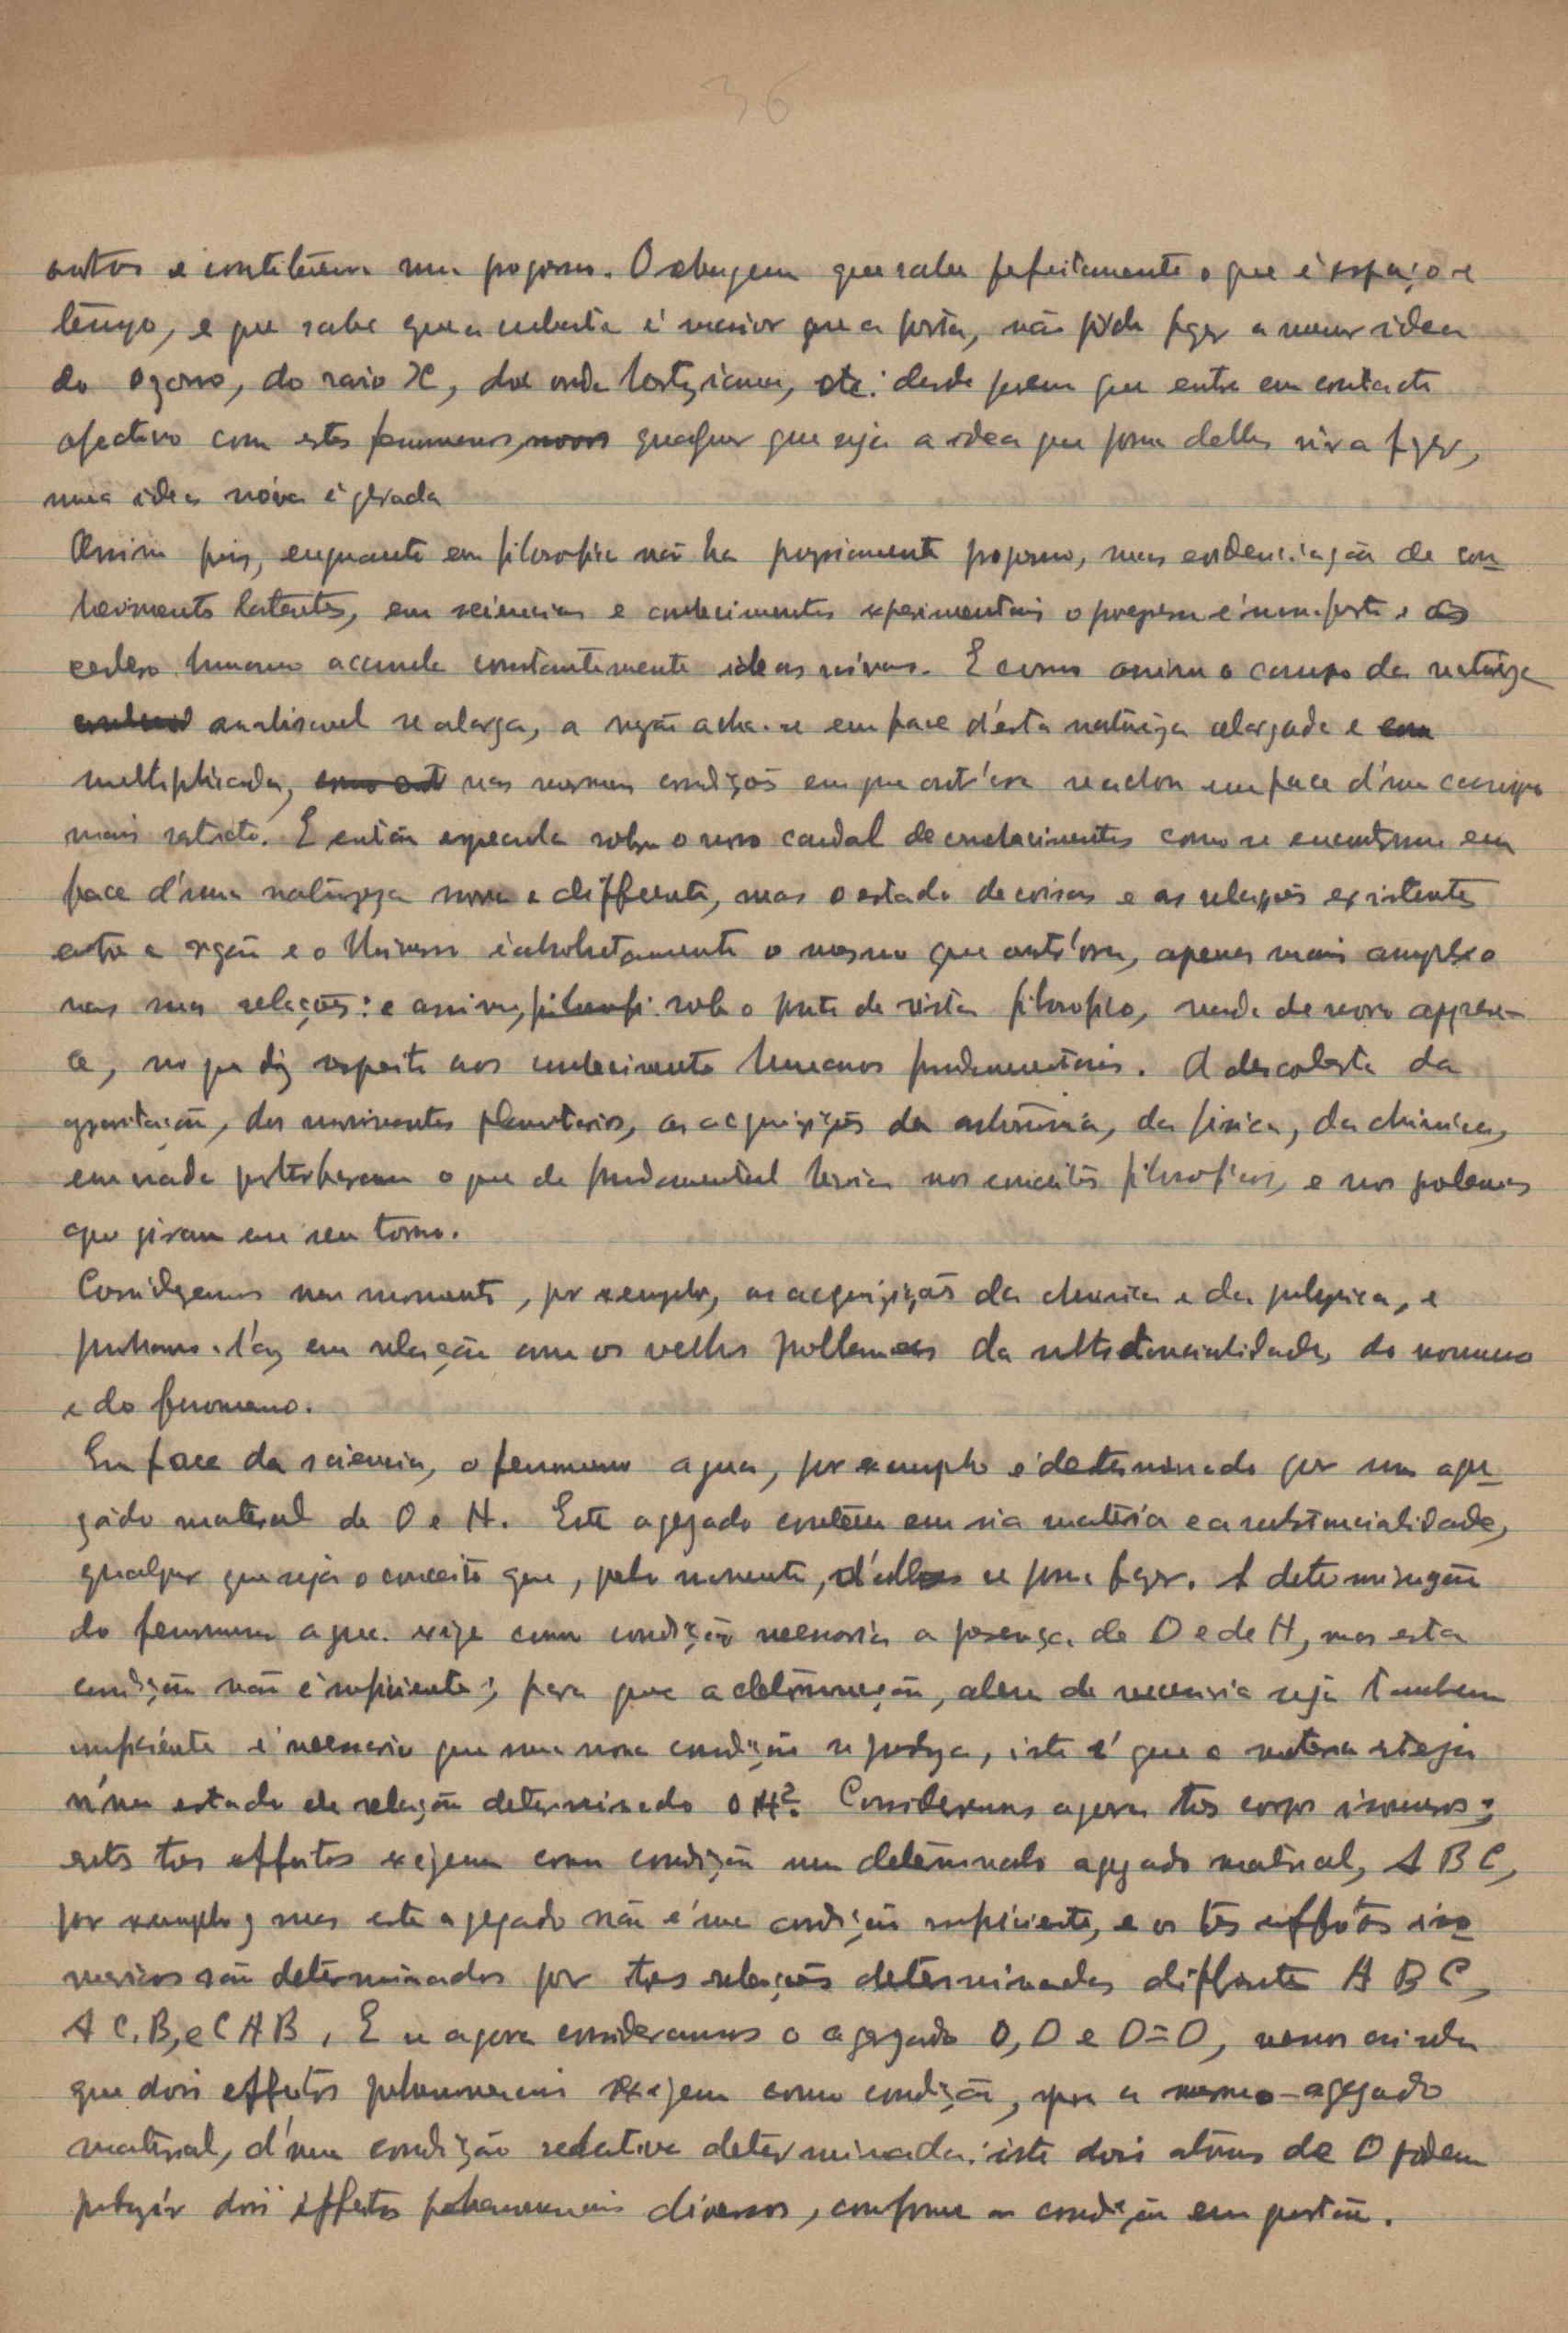 36
outros e constituem um progresso. O selvagem que sabe perfeitamente o que é espaço e
tempo, e que sabe que a cubata é maior que a porta, não póde fazer a menor idea
do ozono, do raio X, da onda hertziana, etc: desde porem que entre em contacto
afectivo com estes fenomenos, novos qualquer que seja a idea que possa delles vir a fazer,
uma idea nóva é gerada
Assim pois, enquanto em filosofia não ha propriamente progresso, mas evidenciação de con-
hecimentos latentes, em sciencias e conhecimentos experimentais o progresso é manifesto e o
cerebro humano acumula constantemente ideas nóvas. E como assim o campo da natureza
analisavel se alarga, a razão acha-se em face d'esta natureza alargada e em
multiplicada, nas mesmas condições em que outr'ora se achou em face d'um campo
mais restricto. E então especula sobre o novo caudal de conhecimentos como se encontrasse em
face d'uma natureza nova e differente, mas o estado de coisas e as relações existentes
entre a razão e o Universo é absolutamente o mesmo que outr'ora, apenas mais amplo
nas suas relações: e assim, filosofi sob o ponto de vista filosofico, nada de novo appare-
ce, no que diz respeito aos conhecimentos humanos fundamentais. A descoberta da
gravitação, dos movimentos planetarios, as acquisições da astronomia, da fisica, da chimica,
em nada perturbaram o que de fundamental havia nos conceitos filosoficos, e nos problemas
que giram em seu torno.
Consideremos um momento, por exemplo, as acquisições da chimica e da physica, e
ponhamo-l'as em relação com os velhos problemas da substancialidade, do noumeno
e do fenomeno.
Em face da sciencia, o fenomeno agua, por exemplo é determinado por um agre-
gádo material de O e H. Este agregado contém em si a matéria e a substancialidade,
qualquer que seja o conceito que, pelo momento, d'ella se possa fazer. A determinação
do fenomeno agua exige como condição necessaria a presença de O e de H, mas esta
condição não é suficiente; para que a determinação, alem de necessaria seja tambem
suficiente é necessario que uma nova condição se produza, isto é que a materia esteja
n'um estado de relação determinado OH². Consideremos agora tres corpos isomeros;
estes tres effeitos exigem como condição um determinado agregado material, A B C,
por exemplo; mas este agregado não é uma condição suficiente, e os tres effeitos iso-
mericos são determinados por tres relações determinadas differentes A B C,
A C, B, e C A B. E se agora consideramos o agregado O, O e O=O, vemos ainda
que dois effeitos phenomenais exigem como condição, para o mesmo agregado
material, d'uma condição relativa determinada: isto dois atomos de O podem
produzir dois effeitos phenomenais diversos, conforme a condição em questão.